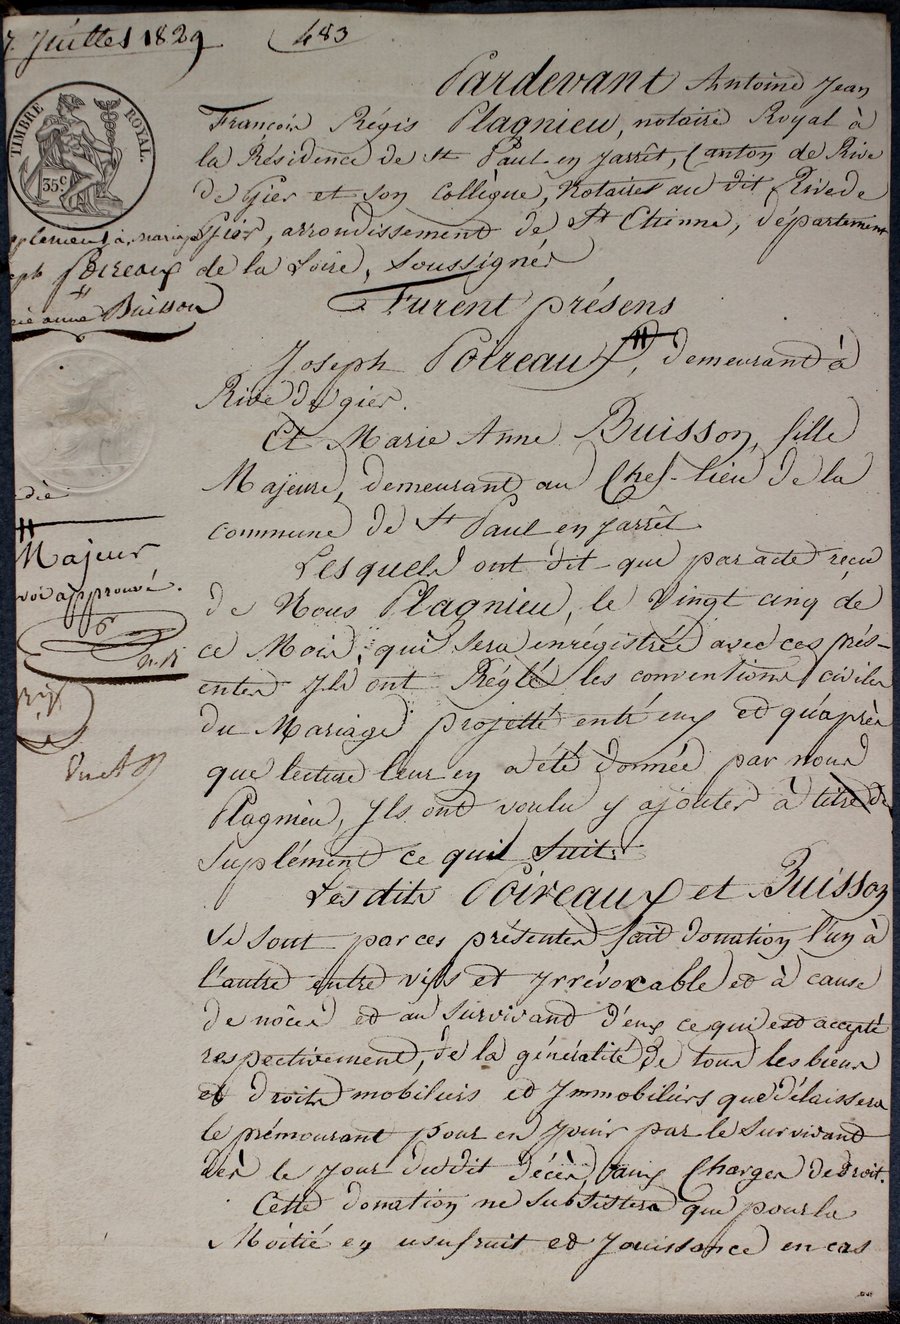 7 Juillet 1829
483
TIMBRE ROYAL.
35 c
Pardevant Antoine Jean
François Régis Plagnieu, notaire Royal à
la Résidence de St Paul en Jarrêt, Canton de Rive
de Gier et son collègue, Notaires au dit Rivede
Gier, arrondissement de St Etienne, département
de la Loire, soussignés
à mariage
eph Poireaux
rie anne Buisson
Furent présens
Joseph Poireaux, demeurant à
Rive de gier.
Et Marie Anne Buisson, fille
Majeure, demeurant au Chef-lieu de la
commune de St Paul en Jarrêt
Majeur
voi approuvé.
Lesquels ont dit que par acte reçu
de Nous Plagnieu, le vingt cinq de
ce Mois, qui sera enrégistrée avec ces prés-
entes Ils ont Réglé les conventions civiles
du Mariage projetté entr'eux et qu'après
que lecture leur en a été donnée par nous
Plagnieu, Ils ont voulu y ajouter à titre de
suplément ce qui suit:
Les dits Poireaux et Buisson
se sont par ces présentes fait donation l'un à
l'autre entre vifs et Irrévocable et à cause
de nôces et au survivant d'eux ce qui est accepté
respectivement, de la généralité de tous les biens
et droits mobiliers et Immobiliers que délaissera
le prémourant pour en Jouir par le survivant
dès le Jour dudit décès, aux Charges de droit.
Cette donation ne subsistera que pour la
Moitié en usufruit et Jouissance en cas